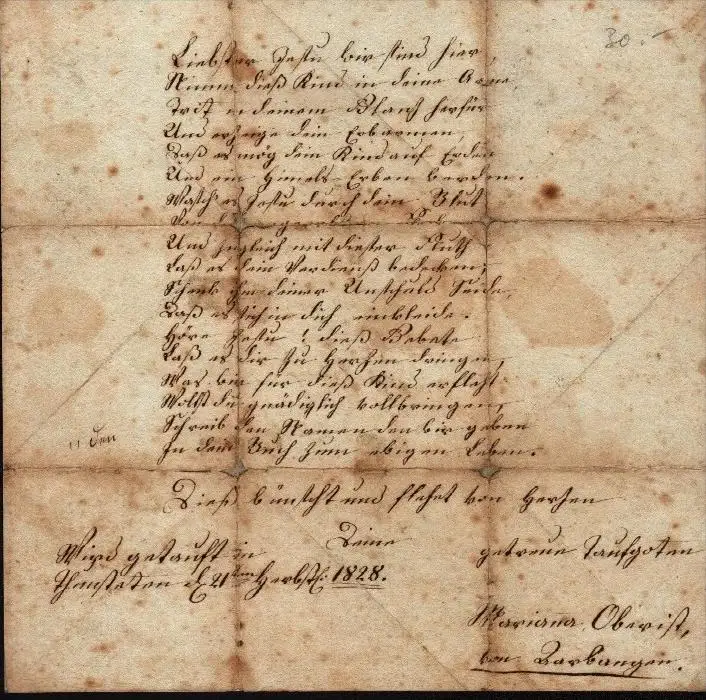 30.-
Liebster Jesu wir sind hier
Nimm dieß Kind in deine Arme
Tritt in deinem Glanz herfür
Und erzeige dein Erbarmen,
Daß es mög dein Kind auf Erden
Und ein Himels-Erben werden.
Wasch es Jesu durch dein Blut
Von
Und zugleich mit diester Fluth
Laß es dein Verdienst bedecken,
Schenk ihm deiner Unschuld Seide,
Daß es sich in dich einkleide.
Höre Jesu! dieß Gebete
Laß es dir zu Herzen dringen,
Was wir für dieß Kind erfleht
Wollst du gnädiglich vollbringen,
Schreib den Namen den wir geben
In dein Buch zum ewigen Leben.
11 den
Dieß wünscht und flehet von Herzen
Deine
getreue Taufgoten
Wird getauft in
den 21ten Herbst: 1828.
Marianna Oberist,
von